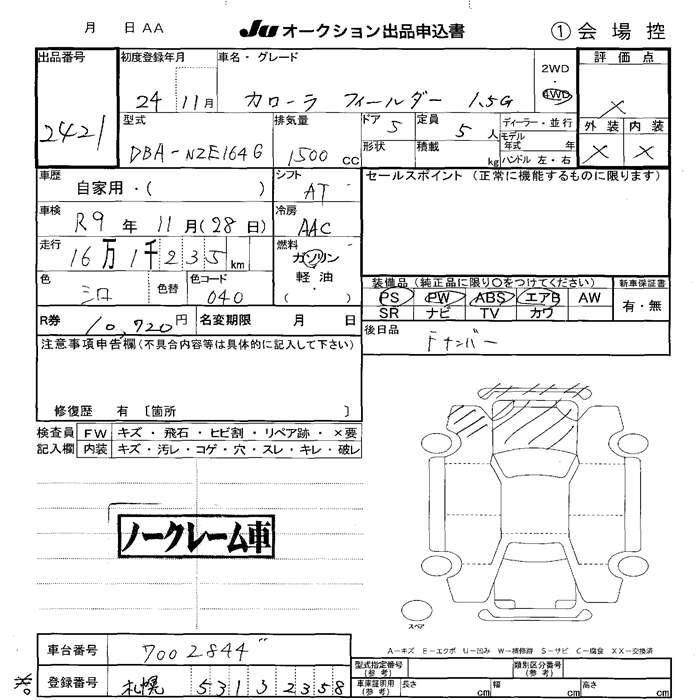 月 日 AA JU オークション出品申込書 ① 会場控
出品番号 初度登録年月 車名・グレード 2WD ・ 4WD 評価点
2421 24 11月 カローラ フィールダー 1.5G X
型式 排気量 ドア 5 定員 5人 ディーラー・並行 外装 内装
DBA-NZE164G 1500 CC 形状 積載 kg モデル年式 年 X X
ハンドル 左・右
車歴 自家用・( ) シフト AT セールスポイント (正常に機能するものに限ります)
車検 R9年 11月(28日) 冷房 AAC
走行 16万 1千 235 km 燃料 ガソリン 軽油 ( ・ )
色 シロ 色替 色コード 040 装備品 (純正品に限り○をつけてください) 新車保証書
PS PW ABS エアB AW 有・無
SR ナビ TV カワ
R券 10,720円 名変期限 月 日 後日品
ナンバー
注意事項申告欄(不具合内容等は具体的に記入して下さい)
修復歴 有 [箇所 ]
検査員 FW キズ・飛石・ヒビ割・リペア跡・×要
記入欄 内装 キズ・汚レ・コゲ・穴・スレ・キレ・破レ
ノークレーム車
スペア
A-キズ E-エクボ U-凹み W-補修跡 S-サビ C-腐食 XX-交換済
車台番号 7002844
型式指定番号 (参考) 類別区分番号 (参考)
登録番号 札幌 531 3 2358
車庫証明用 (参考) 長さ cm 幅 cm 高さ cm